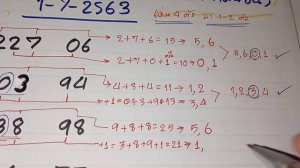 1-7-2563
227 06
2+7+6=15⇒5,6
2+7+0+1=10⇒0,1
5,6,0,1 ✓
03 94
4+3+4=11⇒1,2
+1=0+3+9+1=13⇒3,4
1,2,3,4 ✓
38 98
9+8+8=25⇒5,6
+1=3+8+9+1=21⇒1,